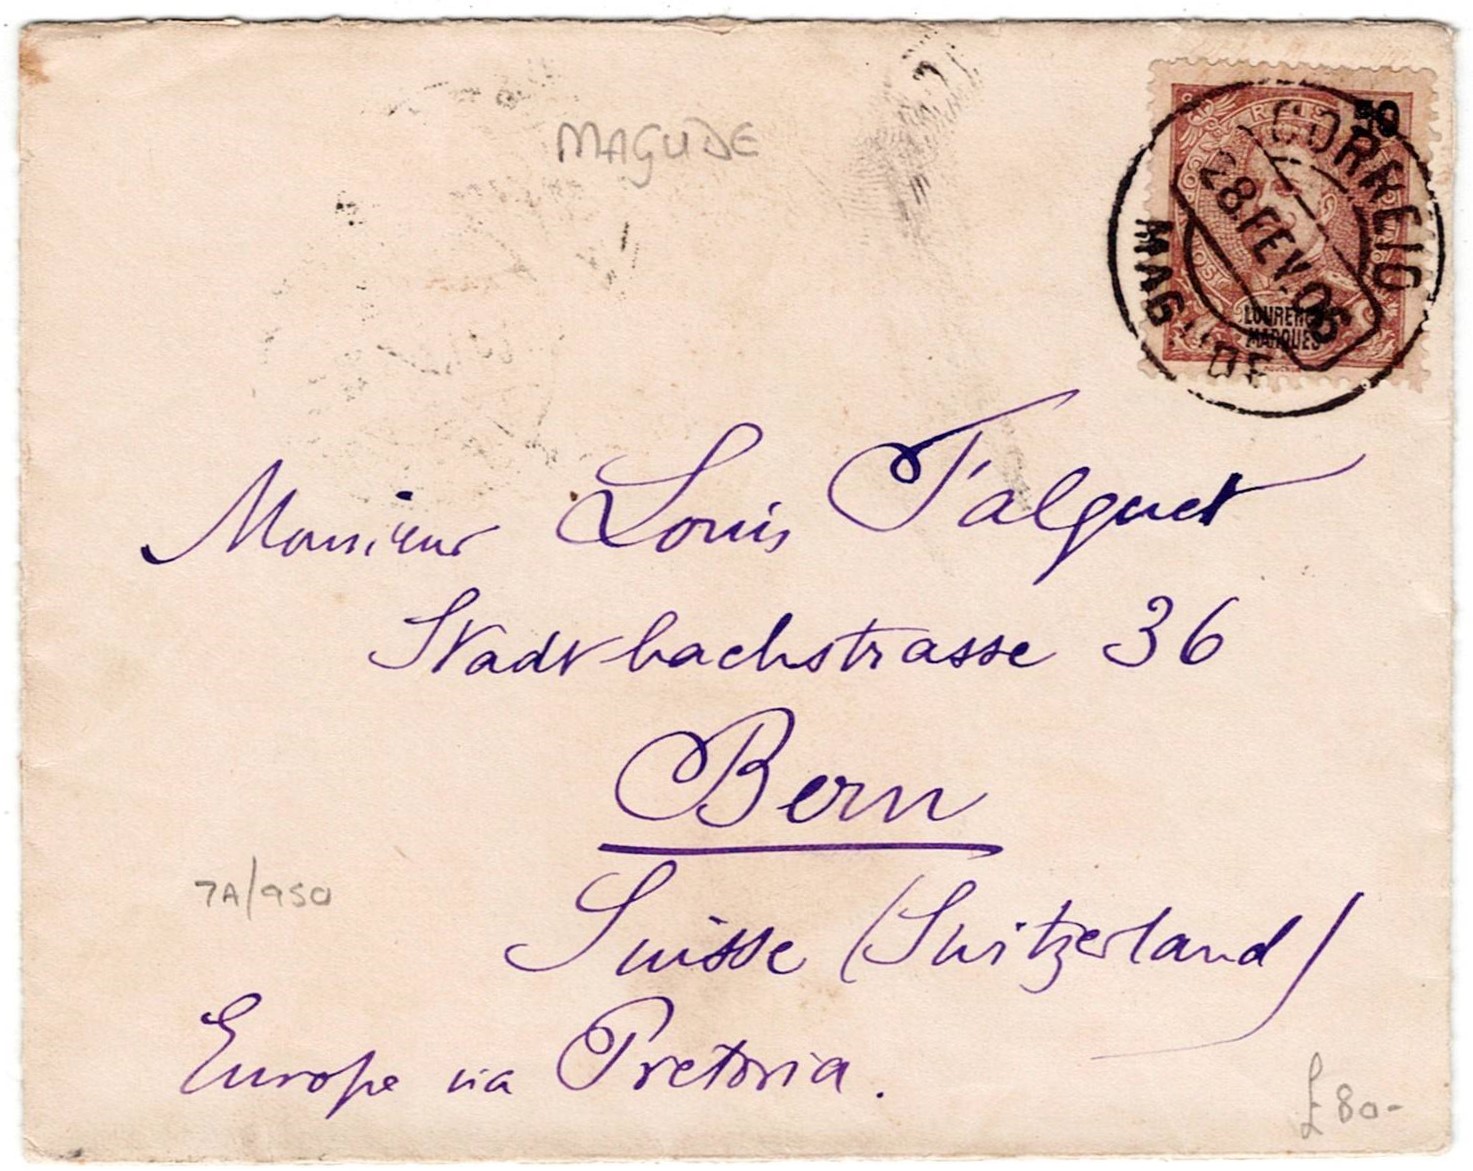 MAGUDE
50
CORREIO
28.FEV.06
MAGUDE
LOURENÇO
MARQUES
Monsieur Louis Falquet
Stadtbachstrasse 36
Bern
Suisse (Switzerland)
Europe via Pretoria.
7A/950
£80-